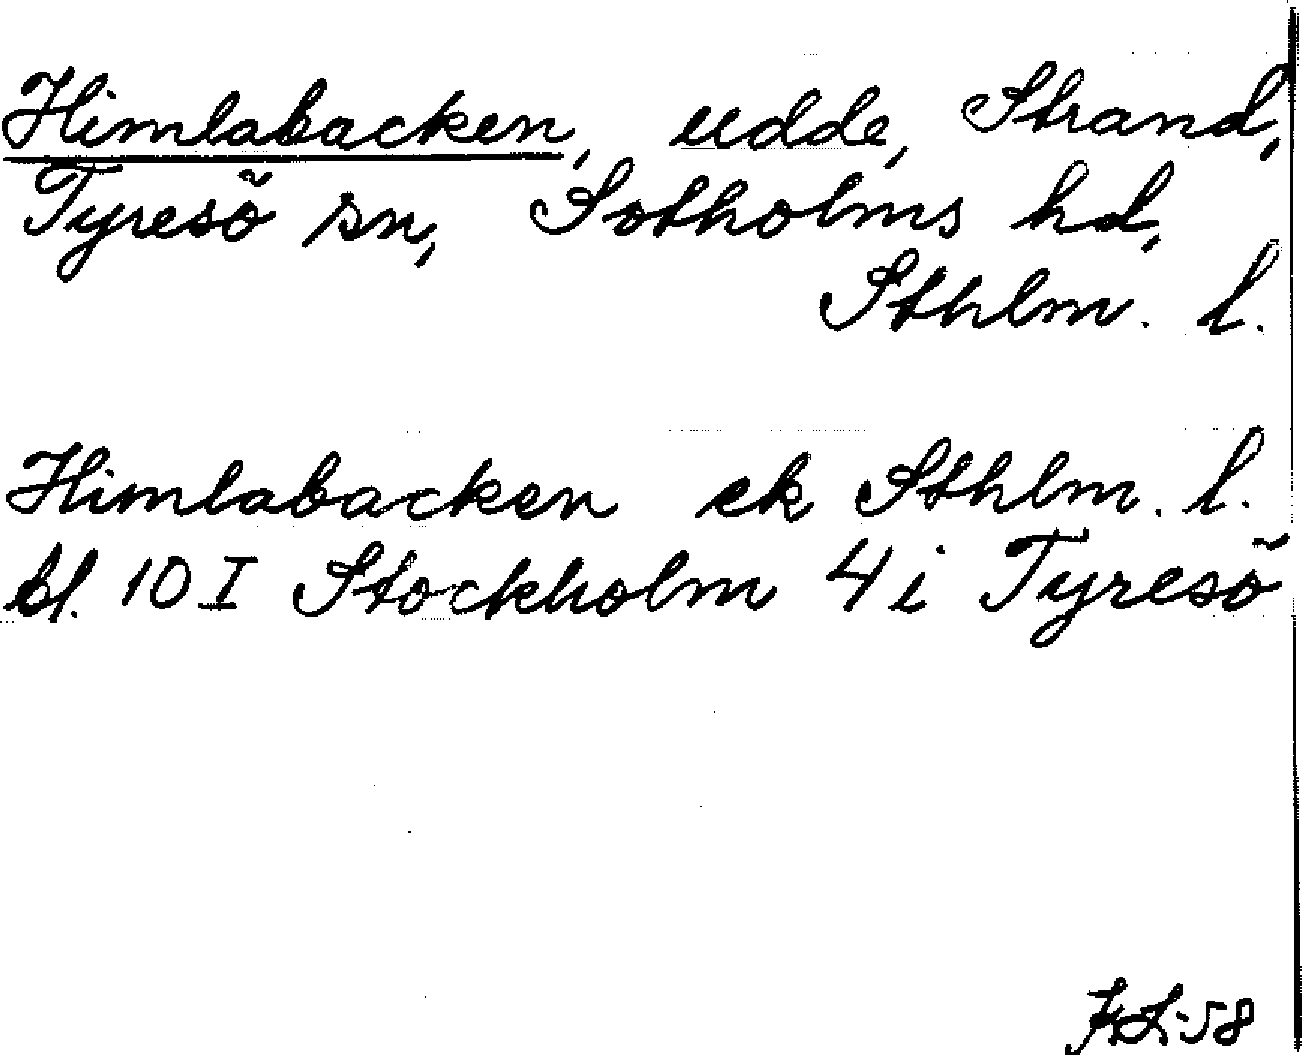 Himlabacken, udde, Strand,
Tyresö sn, Sotholms hd,
Sthlm. l.
Himlabacken ek Sthlm. l.
bl. 10 I Stockholm 4 i Tyresö